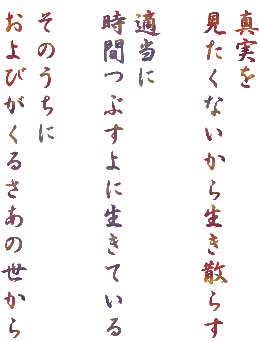 真実を
見たくないから生き散らす
適当に
時間つぶすよに生きている
そのうちに
およびがくるさあの世から